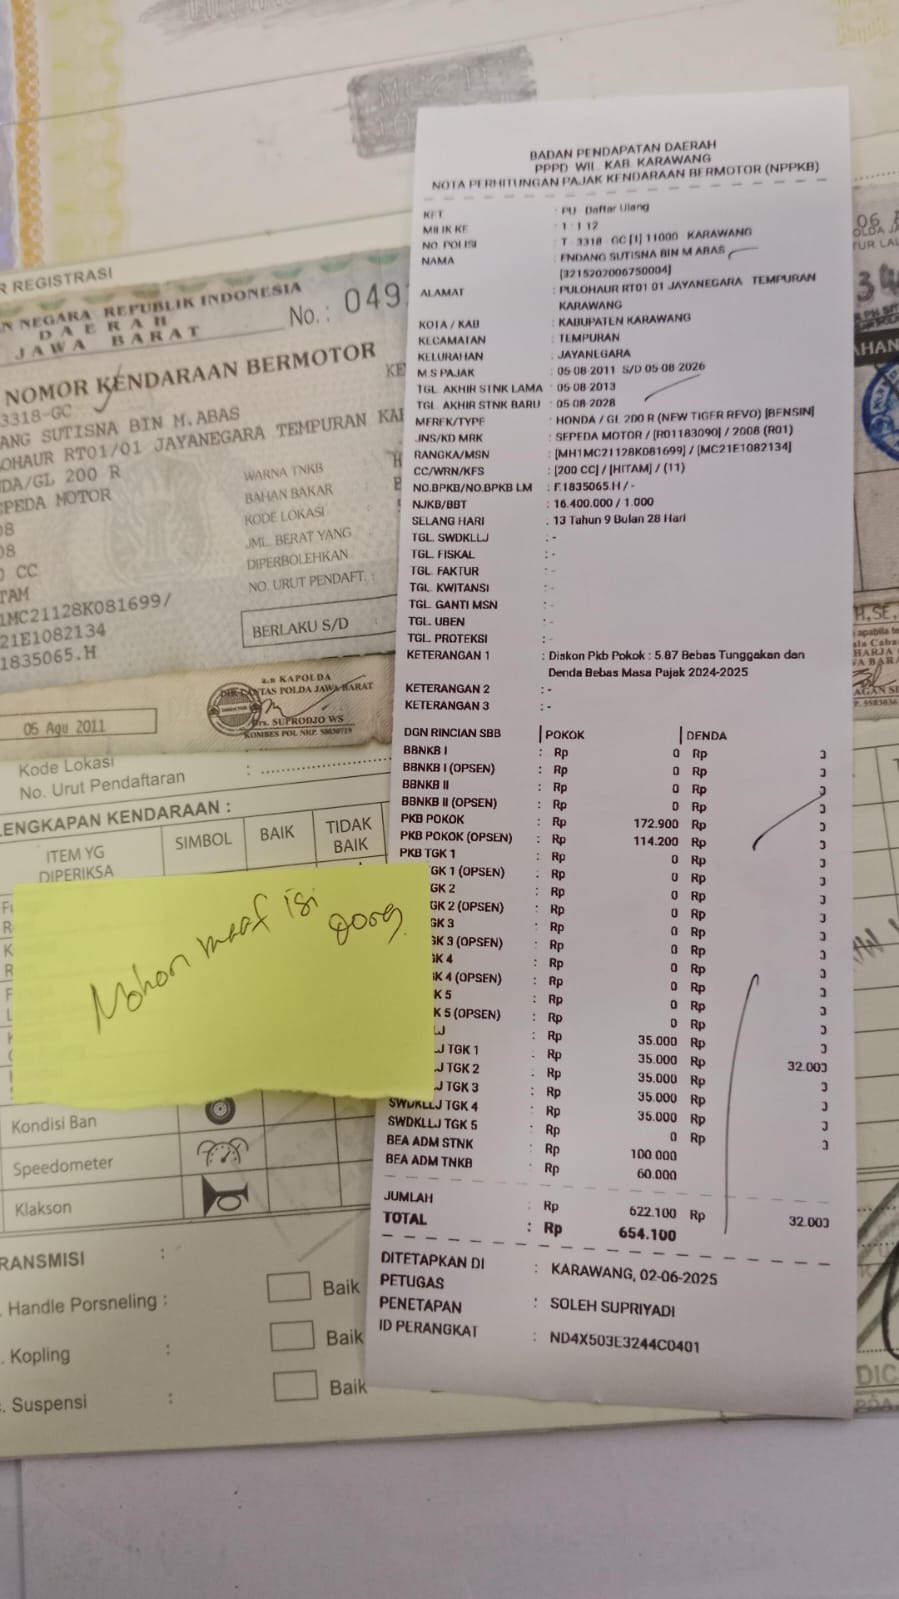 BADAN PENDAPATAN DAERAH
PPPD WIL. KAB. KARAWANG
NOTA PERHITUNGAN PAJAK KENDARAAN BERMOTOR (NPPKB)
KET : PU Daftar Ulang
MILIK KE : 1 1 12
NO. POLISI : T 3318 GC [1] 11000 KARAWANG
NAMA : ENDANG SUTISNA BIN M ABAS
[3215202006750004]
ALAMAT : PULOHAUR RT01 01 JAYANEGARA TEMPURAN
KARAWANG
KOTA / KAB : KABUPATEN KARAWANG
KECAMATAN : TEMPURAN
KELURAHAN : JAYANEGARA
M.S PAJAK : 05-08-2011 S/D 05-08-2026
TGL. AKHIR STNK LAMA : 05-08-2013
TGL. AKHIR STNK BARU : 05-08-2028
MEREK/TYPE : HONDA / GL 200 R (NEW TIGER REVO) [BENSIN]
JNS/KD MRK : SEPEDA MOTOR / [R01183090] / 2008 (R01)
RANGKA/MSN : [MH1MC21128K081699] / [MC21E1082134]
CC/WRN/KFS : [200 CC] / [HITAM] / (11)
NO.BPKB/NO.BPKB LM : F.1835065.H / -
NJKB/BBT : 16.400.000 / 1.000
SELANG HARI : 13 Tahun 9 Bulan 28 Hari
TGL. SWDKLLJ : -
TGL. FISKAL : -
TGL. FAKTUR : -
TGL. KWITANSI : -
TGL. GANTI MSN : -
TGL. UBEN : -
TGL. PROTEKSI : -
KETERANGAN 1 : Diskon Pkb Pokok : 5.87 Bebas Tunggakan dan
Denda Bebas Masa Pajak 2024-2025
KETERANGAN 2 : -
KETERANGAN 3 : -
DGN RINCIAN SBB | POKOK | DENDA
BBNKB I : Rp 0 Rp
BBNKB I (OPSEN) : Rp 0 Rp
BBNKB II : Rp 0 Rp
BBNKB II (OPSEN) : Rp 0 Rp
PKB POKOK : Rp 172.900 Rp
PKB POKOK (OPSEN) : Rp 114.200 Rp
PKB TGK 1 : Rp 0 Rp
GK 1 (OPSEN) : Rp 0 Rp
GK 2 : Rp 0 Rp
GK 2 (OPSEN) : Rp 0 Rp
GK 3 : Rp 0 Rp
GK 3 (OPSEN) : Rp 0 Rp
GK 4 : Rp 0 Rp
K 4 (OPSEN) : Rp 0 Rp
K 5 : Rp 0 Rp
K 5 (OPSEN) : Rp 0 Rp
LJ : Rp 35.000 Rp 32.000
J TGK 1 : Rp 35.000 Rp
J TGK 2 : Rp 35.000 Rp
J TGK 3 : Rp 35.000 Rp
SWDKLLJ TGK 4 : Rp 35.000 Rp
SWDKLLJ TGK 5 : Rp 0 Rp
BEA ADM STNK : Rp 100.000
BEA ADM TNKB : Rp 60.000
JUMLAH : Rp 622.100 Rp 32.000
TOTAL : Rp 654.100
DITETAPKAN DI : KARAWANG, 02-06-2025
PETUGAS
PENETAPAN : SOLEH SUPRIYADI
ID PERANGKAT : ND4X503E3244C0401
Mohon maaf isi
R REGISTRASI
N NEGARA REPUBLIK INDONESIA
DAERAH
JAWA BARAT
No.: 049
NOMOR KENDARAAN BERMOTOR
3318-GC
ANG SUTISNA BIN M.ABAS
OHAUR RT01/01 JAYANEGARA TEMPURAN KAR
DA/GL 200 R
EPEDA MOTOR
08
08
0 CC
TAM
1MC21128K081699/
21E1082134
1835065.H
WARNA TNKB
BAHAN BAKAR
KODE LOKASI
JML BERAT YANG
DIPERBOLEHKAN
NO. URUT PENDAFT. :
BERLAKU S/D
a.n KAPOLDA
DIRLANTAS POLDA JAWA BARAT
Drs. SUPRODJO WS
05 Agu 2011
Kode Lokasi :
No. Urut Pendaftaran
LENGKAPAN KENDARAAN :
ITEM YG DIPERIKSA
SIMBOL
BAIK
TIDAK BAIK
Kondisi Ban
Speedometer
Klakson
RANSMISI :
. Handle Porsneling : Baik
. Kopling : Baik
. Suspensi : Baik